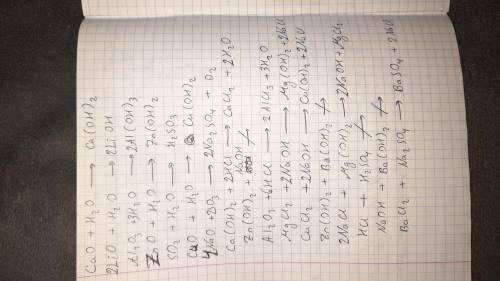 CaO + H₂O ⟶ Ca(OH)₂
2LiO + H₂O ⟶ 2LiOH
Al₂O₃ + 3H₂O ⟶ 2Al(OH)₃
ZnO + H₂O ⟶ Zn(OH)₂
SO₂ + H₂O ⟶ H₂SO₃
CuO + H₂O ⟶ Cu(OH)₂
4NaO + 2SO₃ ⟶ 2Na₂SO₄ + O₂
Ca(OH)₂ + 2HCl ⟶ CaCl₂ + 2H₂O
Zn(OH)₂ + NaOH ↛
Al₂O₃ + 6HCl ⟶ 2AlCl₃ + 3H₂O
MgCl₂ + 2NaOH ⟶ Mg(OH)₂ + 2NaCl
CuCl₂ + 2NaOH ⟶ Cu(OH)₂ + 2NaCl
Zn(OH)₂ + Ba(OH)₂ ↛
2NaCl + Mg(OH)₂ ⟶ 2NaOH + MgCl₂
HCl + H₂SO₄ ↛
NaOH + Ba(OH)₂ ↛
BaCl₂ + Na₂SO₄ ⟶ BaSO₄ + 2NaCl